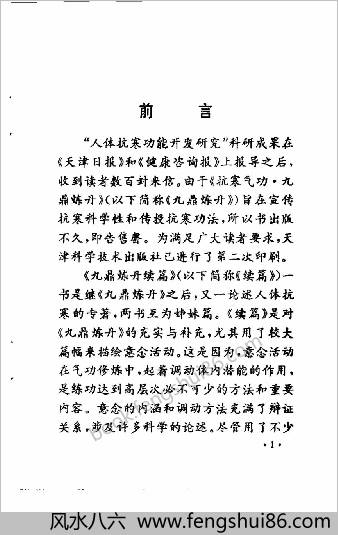 前言
“人体抗寒功能开发研究”科研成果在
《天津日报》和《健康咨询报》上报导之后，
收到读者数百封来信。由于《抗寒气功·九
鼎炼丹》(以下简称《九鼎炼丹》)旨在宣传
抗寒科学性和传授抗寒功法，所以书出版
不久，即告售罄。为满足广大读者要求，天
津科学技术出版社已进行了第二次印刷。
《九鼎炼丹续篇》(以下简称《续篇》)一
书是继《九鼎炼丹》之后，又一论述人体抗
寒的专著，两书互为姊妹篇。《续篇》是对
《九鼎炼丹》的充实与补充，尤其用了较大
篇幅来描绘意念活动。这是因为，意念活动
在气功修炼中，起着调动体内潜能的作用，
是练功达到高层次必不可少的方法和重要
内容。意念的内涵和调动方法充满了辩证
关系，涉及许多科学的论述。尽管用了不少
·1·
book.fengshui86.com
风水八六 www.fengshui86.com